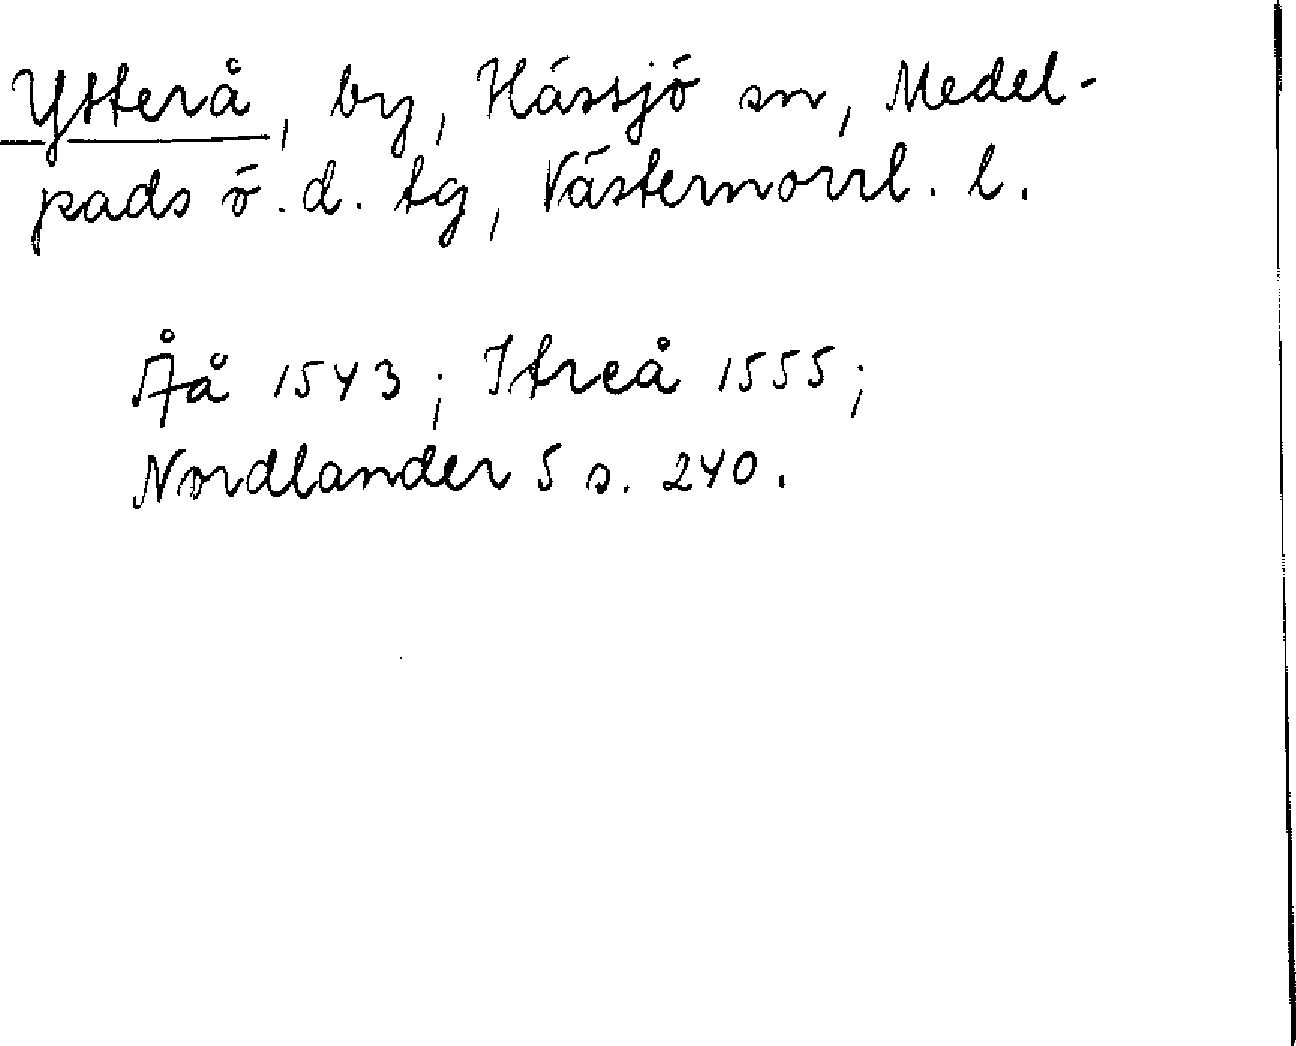 Ytterå, by, Hässjö sn, Medel-
pads ö. d. tg, Västernorrl. l.
Åå 1543; Itreå 1555;
Nordlander 5 s. 240.